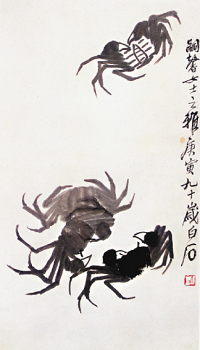 嗣馨女士之雅庚寅九十歲白石